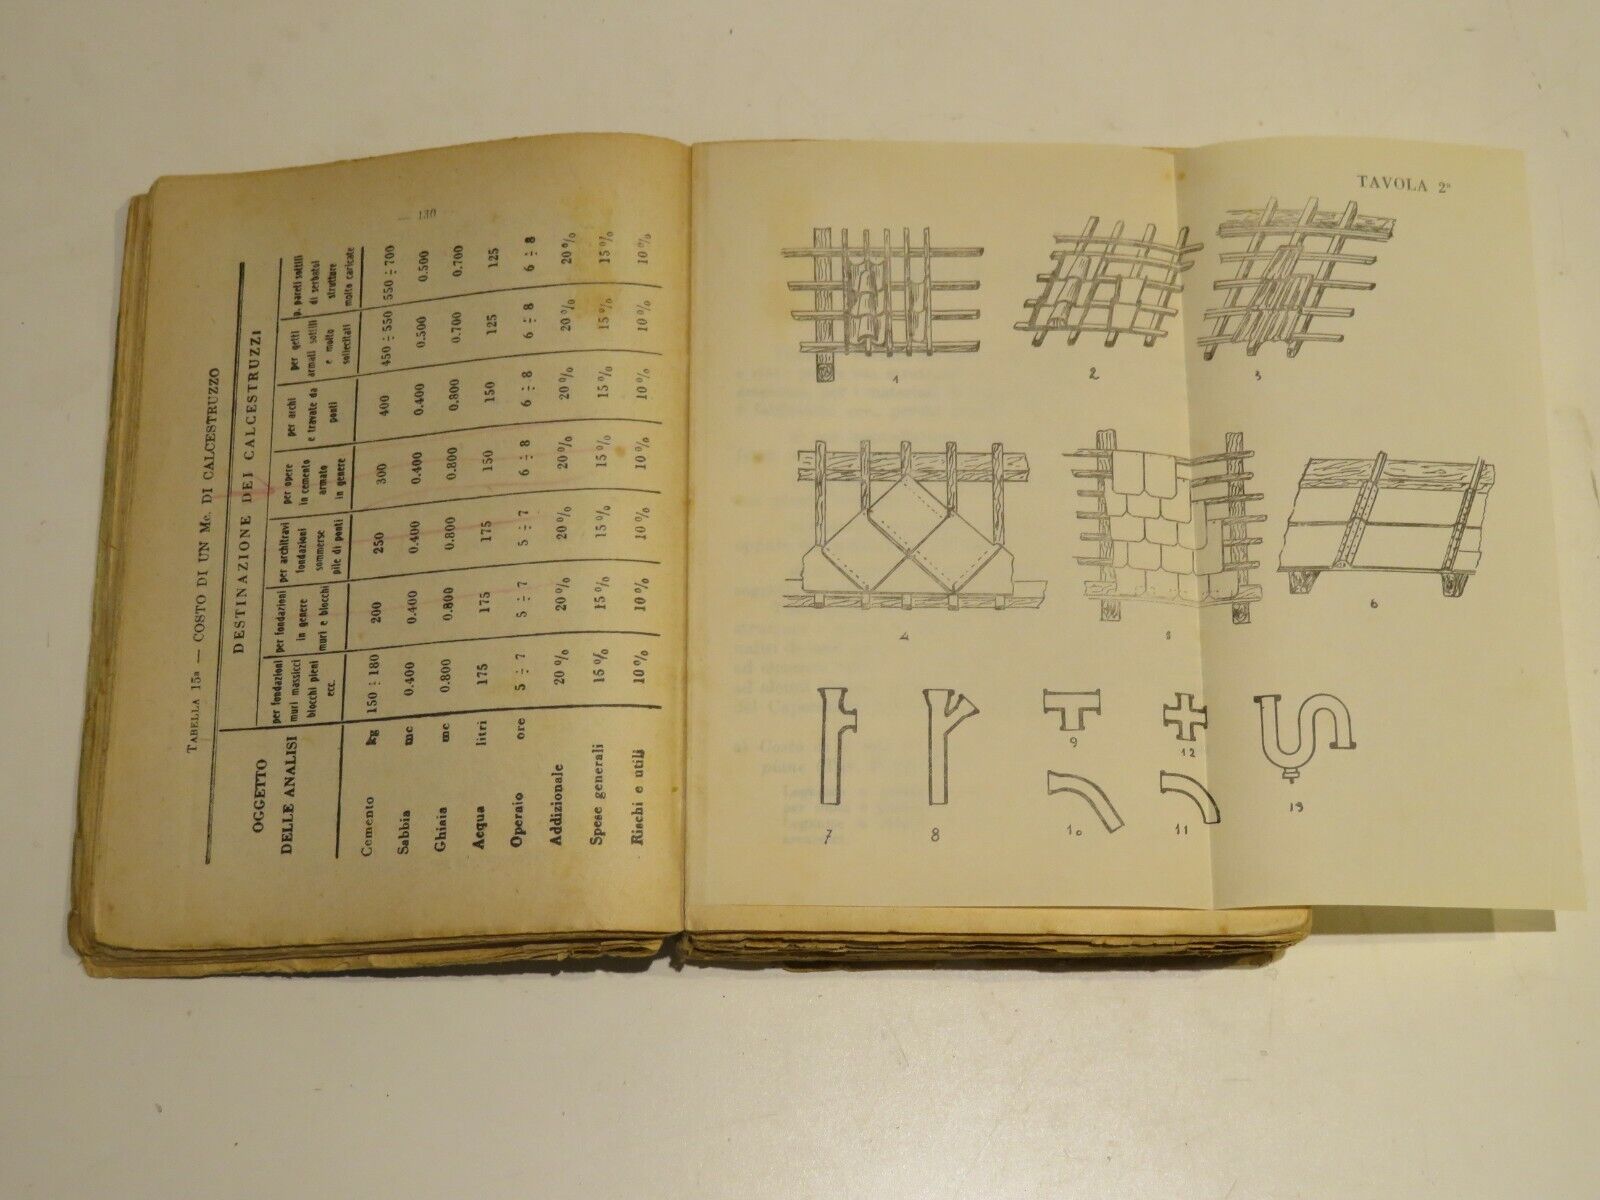 — 130
TABELLA 15ª — COSTO DI UN Mc. DI CALCESTRUZZO
OGGETTO DELLE ANALISI
DESTINAZIONE DEI CALCESTRUZZI
per fondazioni muri massicci blocchi pieni ecc.
per fondazioni in genere muri e blocchi
per architravi fondazioni sommerse pile di ponti
per opere in cemento armato in genere
per archi e travate da ponti
per getti armati sottili e molto sollecitati
p. pareti sottili di serbatoi strutture molto caricate
Cemento kg 150 ÷ 180 200 250 300 400 450 ÷ 550 550 ÷ 700
Sabbia mc 0.400 0.400 0.400 0.400 0.400 0.500 0.500
Ghiaia mc 0.800 0.800 0.800 0.800 0.800 0.700 0.700
Acqua litri 175 175 175 150 150 125 125
Operaio ore 5 ÷ 7 5 ÷ 7 5 ÷ 7 6 ÷ 8 6 ÷ 8 6 ÷ 8 6 ÷ 8
Addizionale 20 % 20% 20% 20% 20% 20% 20%
Spese generali 15 % 15% 15% 15% 15% 15% 15%
Rischi e utili 10% 10% 10% 10% 10% 10% 10%
TAVOLA 2ª
1
2
3
4
6
7
8
9
10
11
12